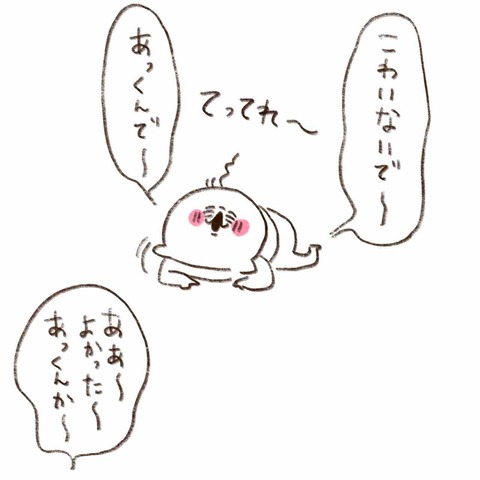 こわいないで〜
てってれ〜
あっくんで〜
ああ〜
よかった〜
あっくんか〜